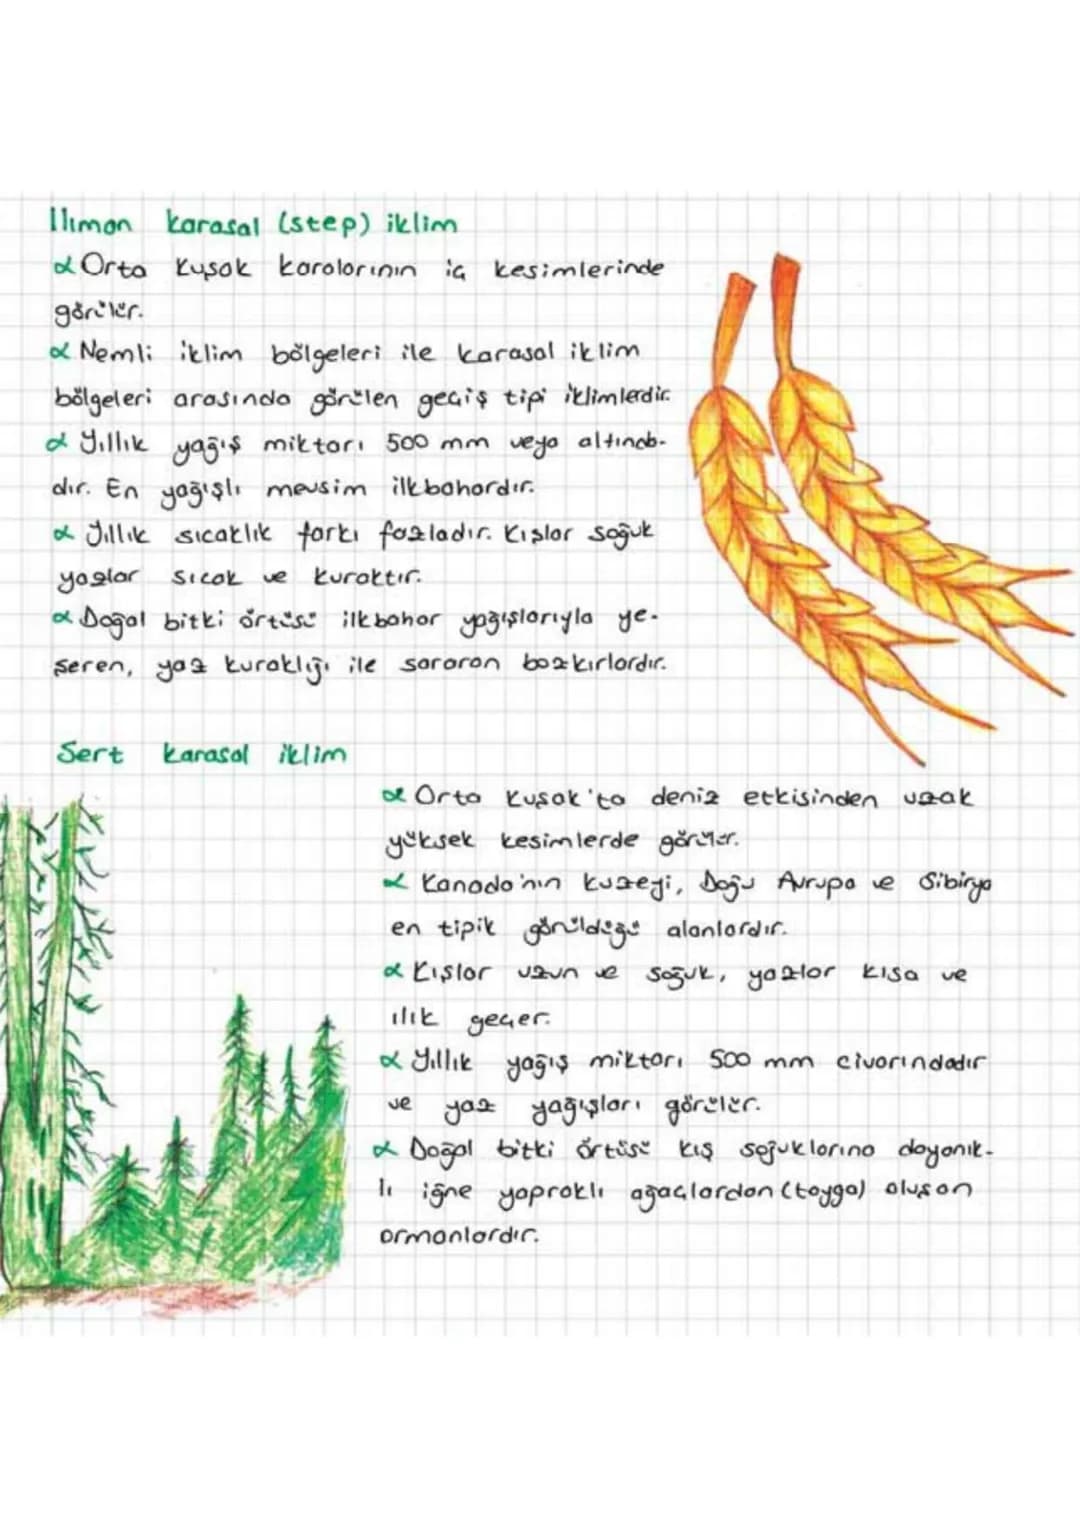 Ilıman karasal (step) iklim
Orta Kuşak karalarının iç kesimlerinde
görülür.
Nemli iklim bölgeleri ile karasal iklim
bölgeleri arasında görülen geçiş tipi iklimlerdir.
Yıllık yağış miktarı 500 mm veya altında-
dır. En yağışlı mevsim ilkbahardır.
Yıllık sıcaklık farkı fazladır. Kışlar soğuk
yazlar sıcak ve kuraktır.
Doğal bitki örtüsü ilkbahar yağışlarıyla ye-
şeren, yaz kuraklığı ile sararan bozkırlardır.
Sert karasal iklim
Orta Kuşak'ta deniz etkisinden uzak
yüksek kesimlerde görülür.
Kanada'nın kuzeyi, Doğu Avrupa ve Sibirya
en tipik görüldüğü alanlardır.
Kışlar uzun ve soğuk, yazlar kısa ve
ılık geçer.
Yıllık yağış miktarı 500 mm civarındadır
ve yaz yağışları görülür.
Doğal bitki örtüsü kış soğuklarına dayanık-
lı iğne yapraklı ağaçlardan (tayga) oluşan
ormanlardır.